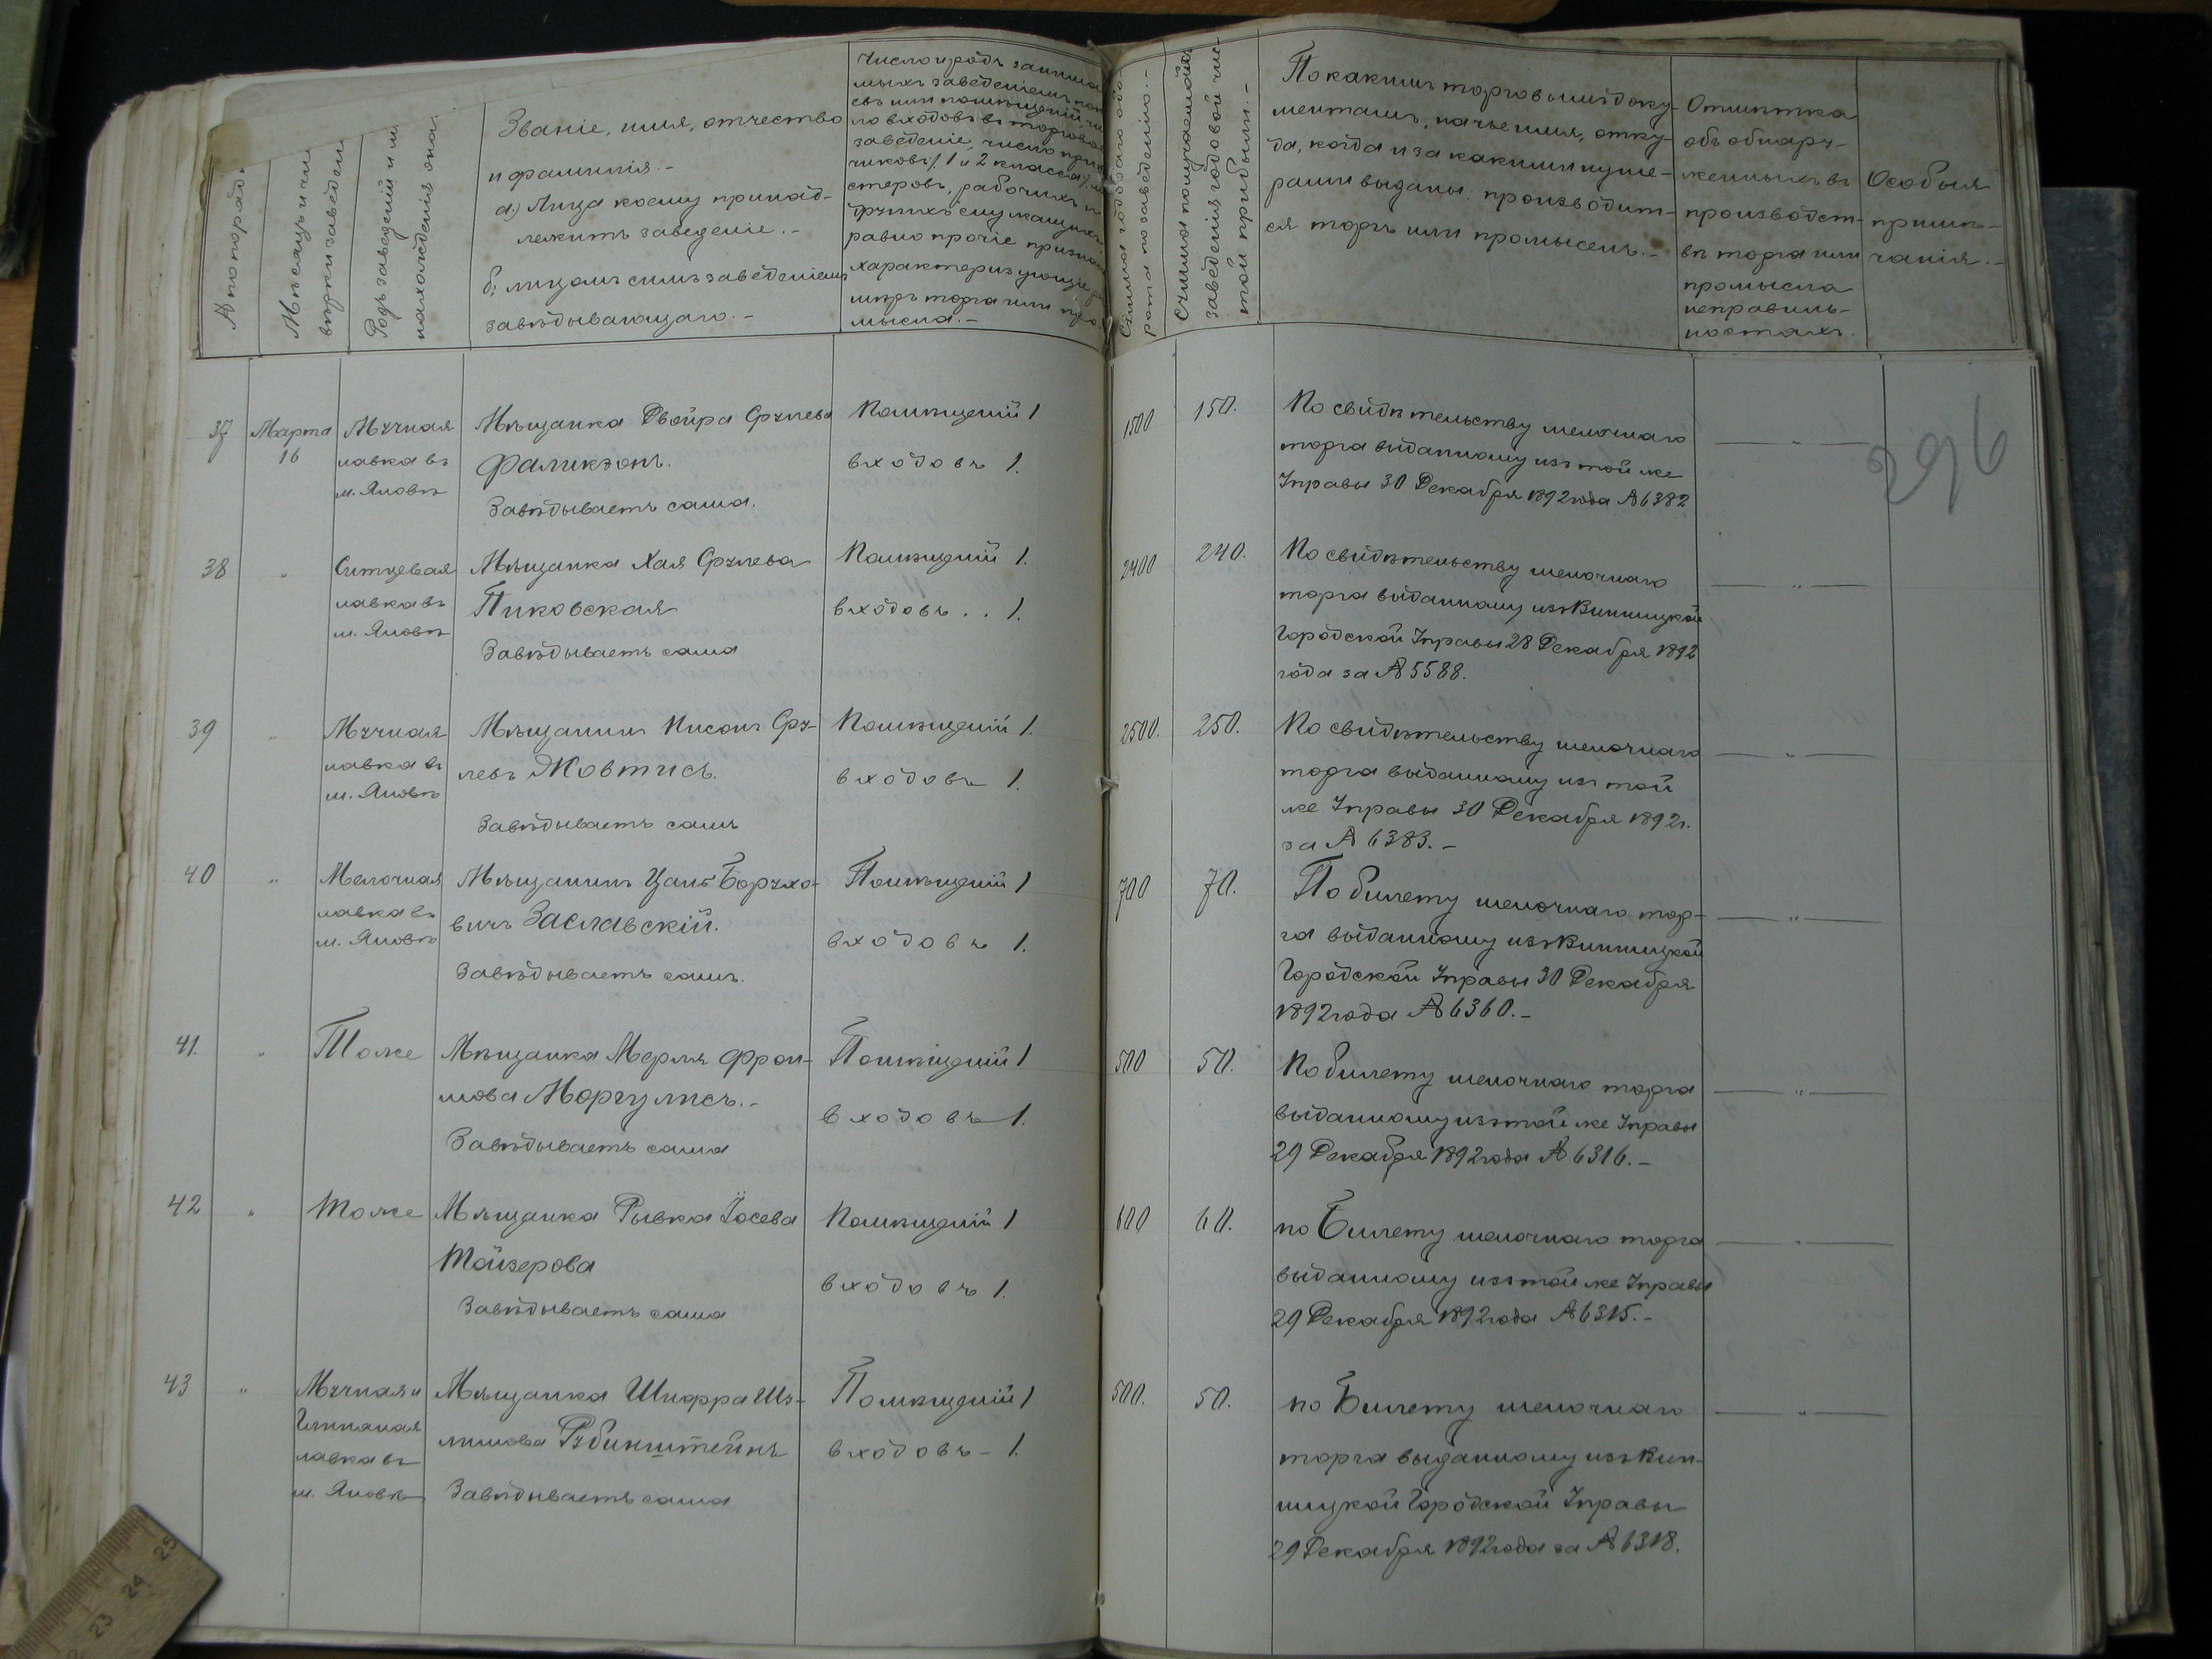 № по порядк
Мѣсяцъ и чи
вѣрки заведен
Родъ заведенія и м
нахожденія она
Званіе, имя, отчество
и фамилія.-
а) Лица коему принад-
лежитъ заведеніе.-
б; лицомъ симъ заведеніемъ
завѣдывающаго.-
Число и родъ занима
мыхъ заведеніемъ пок
евъ или помѣщеній чи
ло входовъ въ торговое
заведеніе, число прик
чиковъ 1 и 2 класса), ма
стеровъ, рабочихъ и
другихъ служащихъ
равно прочіе признак
характеризующіе ра
мѣръ торга или про
мысла.-
Сумма годоваго обо-
рота по заведенію.-
Сумма получаемой
заведенія годовой чис
той прибыли.-
По какимъ торговымъ доку-
ментамъ, на чье имя, отку-
да, когда и за какими нуме-
рами выданы. производит-
ся торгъ или промыселъ.-
Отмѣтка
объ обнару-
женныхъ въ
производст-
вѣ торга или
промысла
неправиль-
ностяхъ.
Особыя
примѣ-
чанія.-
296
37 Марта 16 Мучная
лавка въ
м. Яновѣ
Мѣщанка Двойра Срулева
Фаликзонъ.
Завѣдываетъ сама.
Помѣщеній 1
входовъ 1.
1500 150.
По свидѣтельству мелочнаго
торга выданному изъ той же
Управы 30 Декабря 1892 года № 6382
— " —
38 " Ситцевая
лавка въ
м. Яновѣ
Мѣщанка Хая Срулева
Пиковская
Завѣдываетъ сама
Помѣщеній 1.
входовъ . . 1.
2400 240.
По свидѣтельству мелочнаго
торга выданному изъ Винницкой
Городской Управы 28 Декабря 1892
года за № 5588.
— " —
39 " Мучная
лавка въ
м. Яновѣ
Мѣщанинъ Нисонъ Сру-
левъ Жовтисъ.
Завѣдываетъ самъ
Помѣщеній 1.
входовъ 1.
2500. 250.
По свидѣтельству мелочнаго
торга выданному изъ той
же Управы 30 Декабря 1892 г.
за № 6383.-
— " —
40 " Мелочная
лавка въ
м. Яновѣ
Мѣщанинъ Цаль Борухо-
вичъ Заславскій.
Завѣдываетъ самъ.
Помѣщеній 1
входовъ 1.
700 70.
По билету мелочнаго тор-
га выданному изъ Винницкой
Городской Управы 30 Декабря
1892 года № 6360.-
— " —
41. " Тоже
Мѣщанка Мерля Фрои-
мова Моргулисъ.-
Завѣдываетъ сама
Помѣщеній 1
входовъ 1.
500 50.
По билету мелочнаго торга
выданному изъ той же Управы
29 Декабря 1892 года № 6316.-
— " —
42 " Тоже
Мѣщанка Рывка Іосева
Тойзерова
Завѣдываетъ сама
Помѣщеній 1
входовъ 1.
600 60.
по Билету мелочнаго торга
выданному изъ той же Управы
29 Декабря 1892 года № 6315.-
— " —
43 " Мучная и
лавка въ
м. Яновѣ
Мѣщанка Шифра Шу-
лимова Рубинштейнъ
Завѣдываетъ сама
Помѣщеній 1
входовъ - 1.
500. 50.
по Билету мелочнаго
торга выданному изъ Вин-
ницкой Городской Управы
29 Декабря 1892 года за № 6318.
— " —
23 24 25